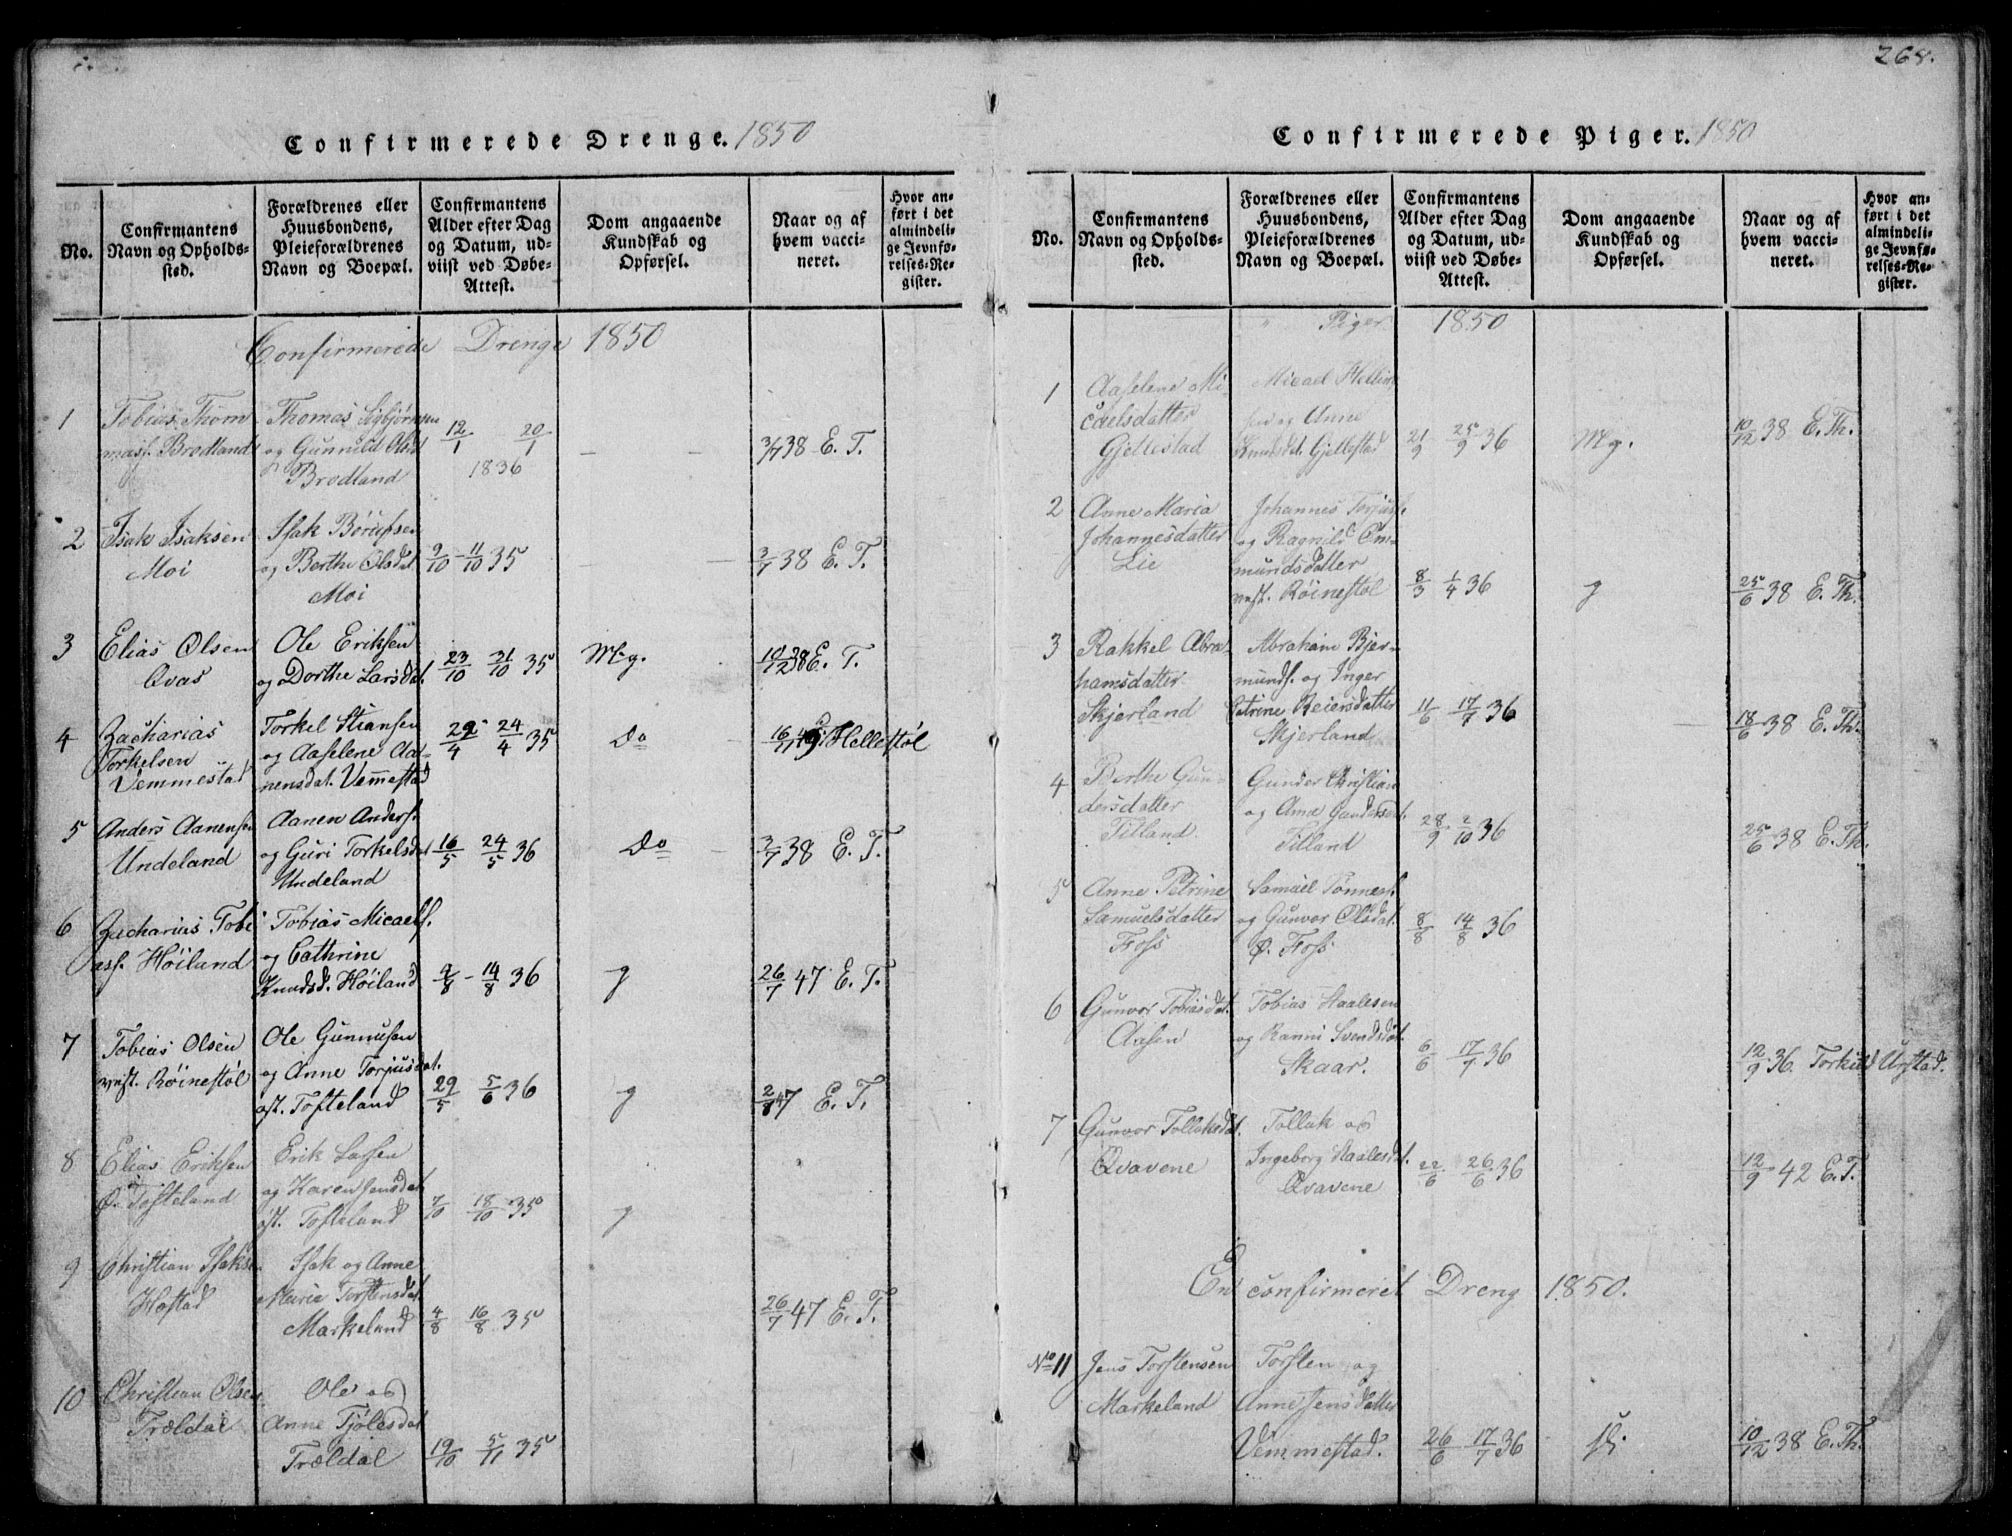 268.
Confirmerede Drenge. 1850
No.
Confirmantens
Navn og Opholds-
sted.
Forældrenes eller
Huusbondens,
Pleieforældrenes
Navn og Boepæl.
Confirmantens
Alder efter Dag
og Datum, ud-
viist ved Døbe-
Attest.
Dom angaaende
Kundskab og
Opførsel.
Naar og af
hvem vacci-
neret.
Hvor an-
ført i det
almindeli-
ge Jevnfø-
relses-Re-
gister.
Confirmerede Drenge 1850
1
Tobias Thom
masf. Brodland
Thomas Sigbjørnsen
og Gunnild Olsd
Brodland
12/1 20/1
1836
3/7 38 E. T.
2
Isak Isaksen
Moi
Isak Børufsen
og Berthe Olsdat
Moi
9/10 - 11/10 35
3/7 38 E. T.
3
Elias Olsen
Qvas
Ole Eriksen
og Dorthe Larsdat.
23/10 31/10 35
M.g.
10/12 38 E. T.
4
Zacharias
Torkelsen
Vemmestad
Torkel Stiansen
og Aaselene Aa-
nensdat. Vemestad
22/4 24/4 35
Do
16/11 49 Hellestøl
5
Anders Aanensen
Undeland
Aanen Andersf.
og Guri Torkelsdat
Undeland
16/5 24/5 36
Do
3/7 38 E. T.
6
Zacharius Tobi
asf. Høiland
Tobias Micaelsf.
og Cathrine
Knudsd. Høiland
4/8 - 14/8 36
g
26/7 47 E. T.
7
Tobias Olsen
vest. Røinestøl
Ole Gunnufsen
og Anne Torjusdat.
øst. Tofteland
29/5 5/6 36
g
2/8 47 E. T.
8
Elias Eriksen
Ø. Tofteland
Erik Lassen
og Karen Jensdat
øst. Tofteland
7/10 18/10 35
g
9
Christian Isakse
Hæstad
Isak og Anne
Marie Torstensdat
Markeland
4/8 16/8 35
26/7 47 E. T.
10
Christian Olsen
Trældal
Ole og
Anne Tjølesdat
Trældal
19/10 5/11 35
Confirmerede Piger. 1850
No.
Confirmantens
Navn og Opholds-
sted.
Forældrenes eller
Huusbondens,
Pleieforældrenes
Navn og Boepæl.
Confirmantens
Alder efter Dag
og Datum, ud-
viist ved Døbe-
Attest.
Dom angaaende
Kundskab og
Opførsel.
Naar og af
hvem vacci-
neret.
Hvor an-
ført i det
almindeli-
ge Jevnfø-
relses-Re-
gister.
" Piger 1850
1
Aaselene Mi-
caelsdatter
Gjellestad
Micael
sen og Anne
Knudsdt. Gjellestad
21/9 25/9 36
M.g.
10/12 38 E. Th.
2
Anne Maria
Johannesdatter
Lie
Johannes Torjusf.
og Ragnild Om-
mundsdatter
vest. Røinestøl
8/3 1/4 36
g
25/6 38 E. Th.
3
Rakkel Abra-
hamsdatter
Skjerland
Abraham Bjer-
mundf. og Inger
Catrine Reiersdatter
Skjerland
11/6 17/7 36
18/6 38 E. Th.
4
Berthe Gun-
dersdatter
Tilland
Gunder Christian
og Ama Gundersdt.
Tilland
28/9 2/10 36
25/6 38 E. Th.
5
Anne Petrine
Samuelsdatter
Foss
Samuel Tønnesf.
og Gunvor Olsdat.
Ø. Foss
8/8 14/8 36
6
Gunvor Tobiasdat.
Aasen
Tobias Staalesen
og Ranni Svendsdat.
Skaar.
6/6 17/7 36
12/9 36. Torkild Urstad.
7
Gunvor Tollaksdat.
Qvavene
Tollak og
Ingeborg Staalesdat.
Qvavene
22/6 26/6 36
12/9 42 E. T.
En confirmeret Dreng 1850.
No 11
Jens Torstensen
Markeland
Torsten og
Anne Jensdatter
Vemmestad.
26/6 17/7 36
10/12 38 E. Th.